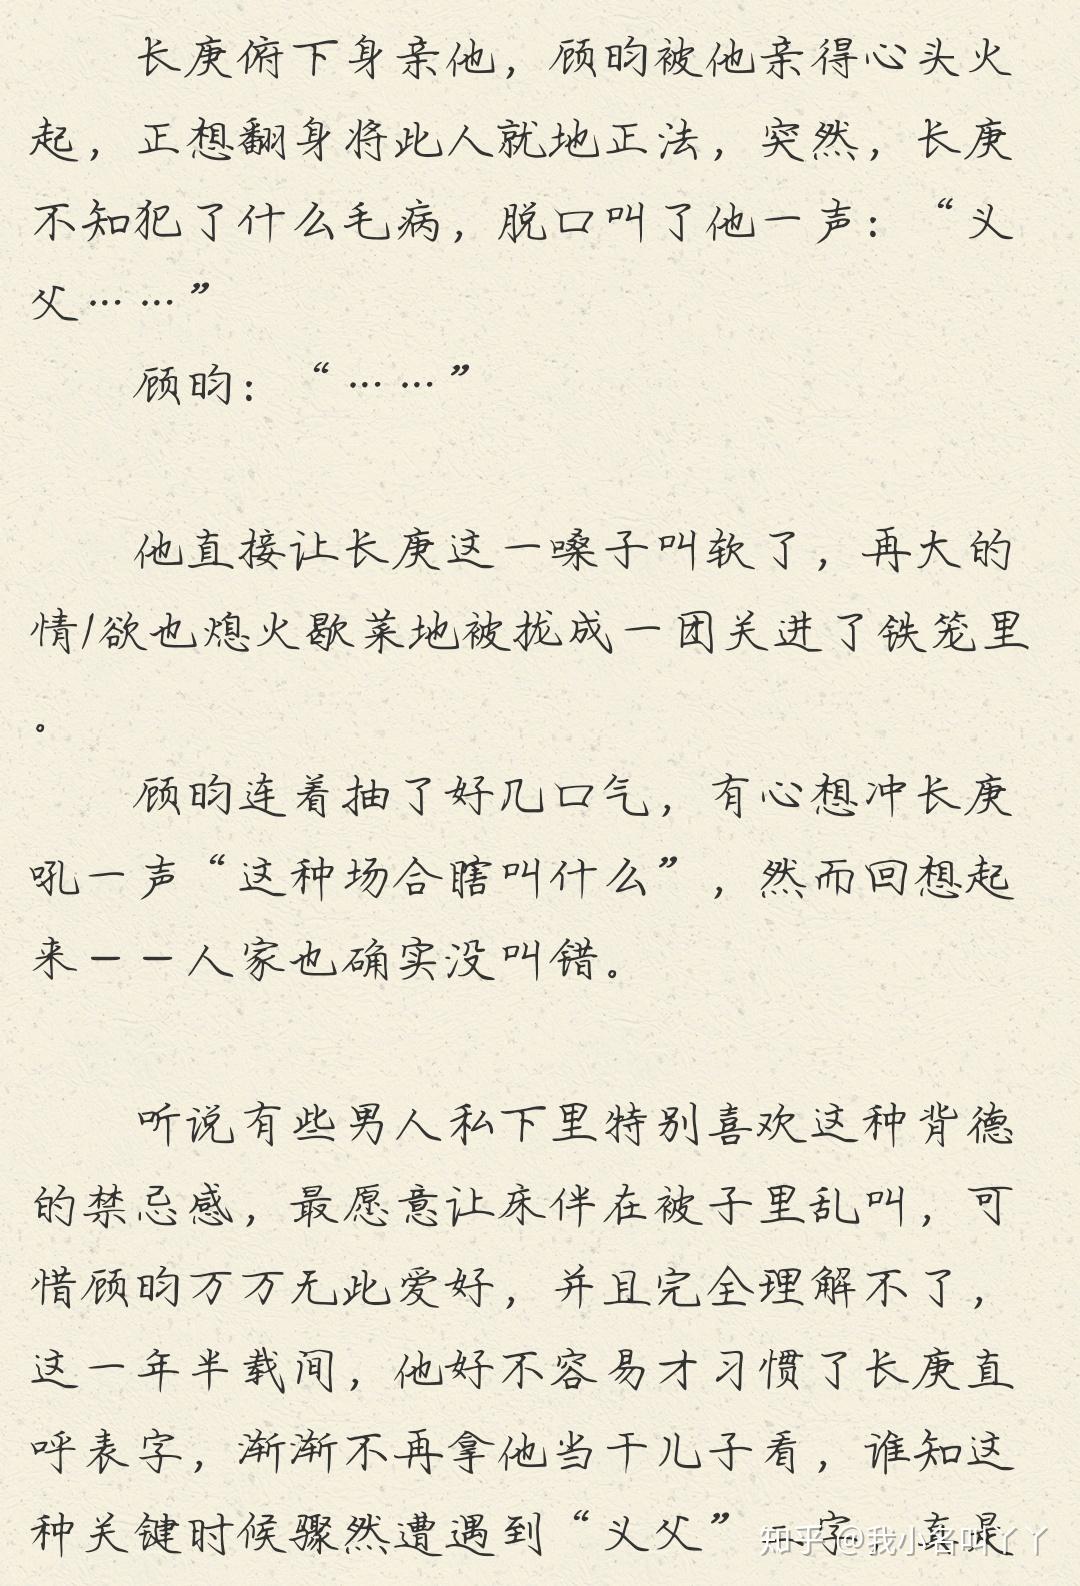 长庚俯下身亲他，顾昀被他亲得心头火
起，正想翻身将此人就地正法，突然，长庚
不知犯了什么毛病，脱口叫了他一声：“义
父……”
顾昀：“……”
他直接让长庚这一嗓子叫软了，再大的
情/欲也熄火歇菜地被拢成一团关进了铁笼里
。
顾昀连着抽了好几口气，有心想冲长庚
吼一声“这种场合瞎叫什么”，然而回想起
来——人家也确实没叫错。
听说有些男人私下里特别喜欢这种背德
的禁忌感，最愿意让床伴在被子里乱叫，可
惜顾昀万万无此爱好，并且完全理解不了，
这一年半载间，他好不容易才习惯了长庚直
呼表字，渐渐不再拿他当干儿子看，谁知这
种关键时候骤然遭遇到“义父”二字，真是
知乎 @我小名叫丫丫